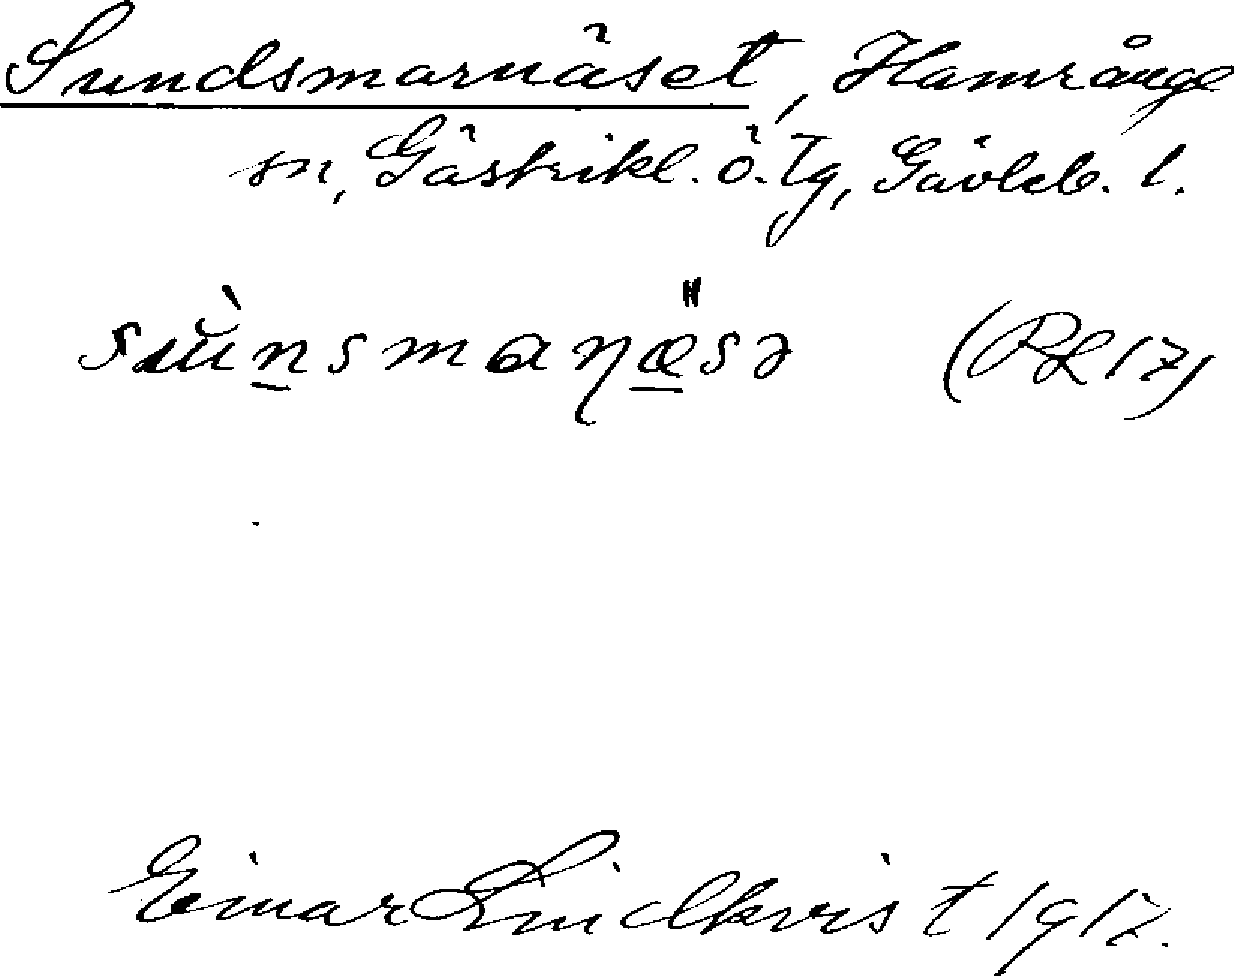 Sundsmarnäset, Hamrånge
sn, Gästrikl. ö. Tg, Gävleb. l.
sùnsmaŋæ̈sə (RL 17)
Einar Lindkvist 1917.